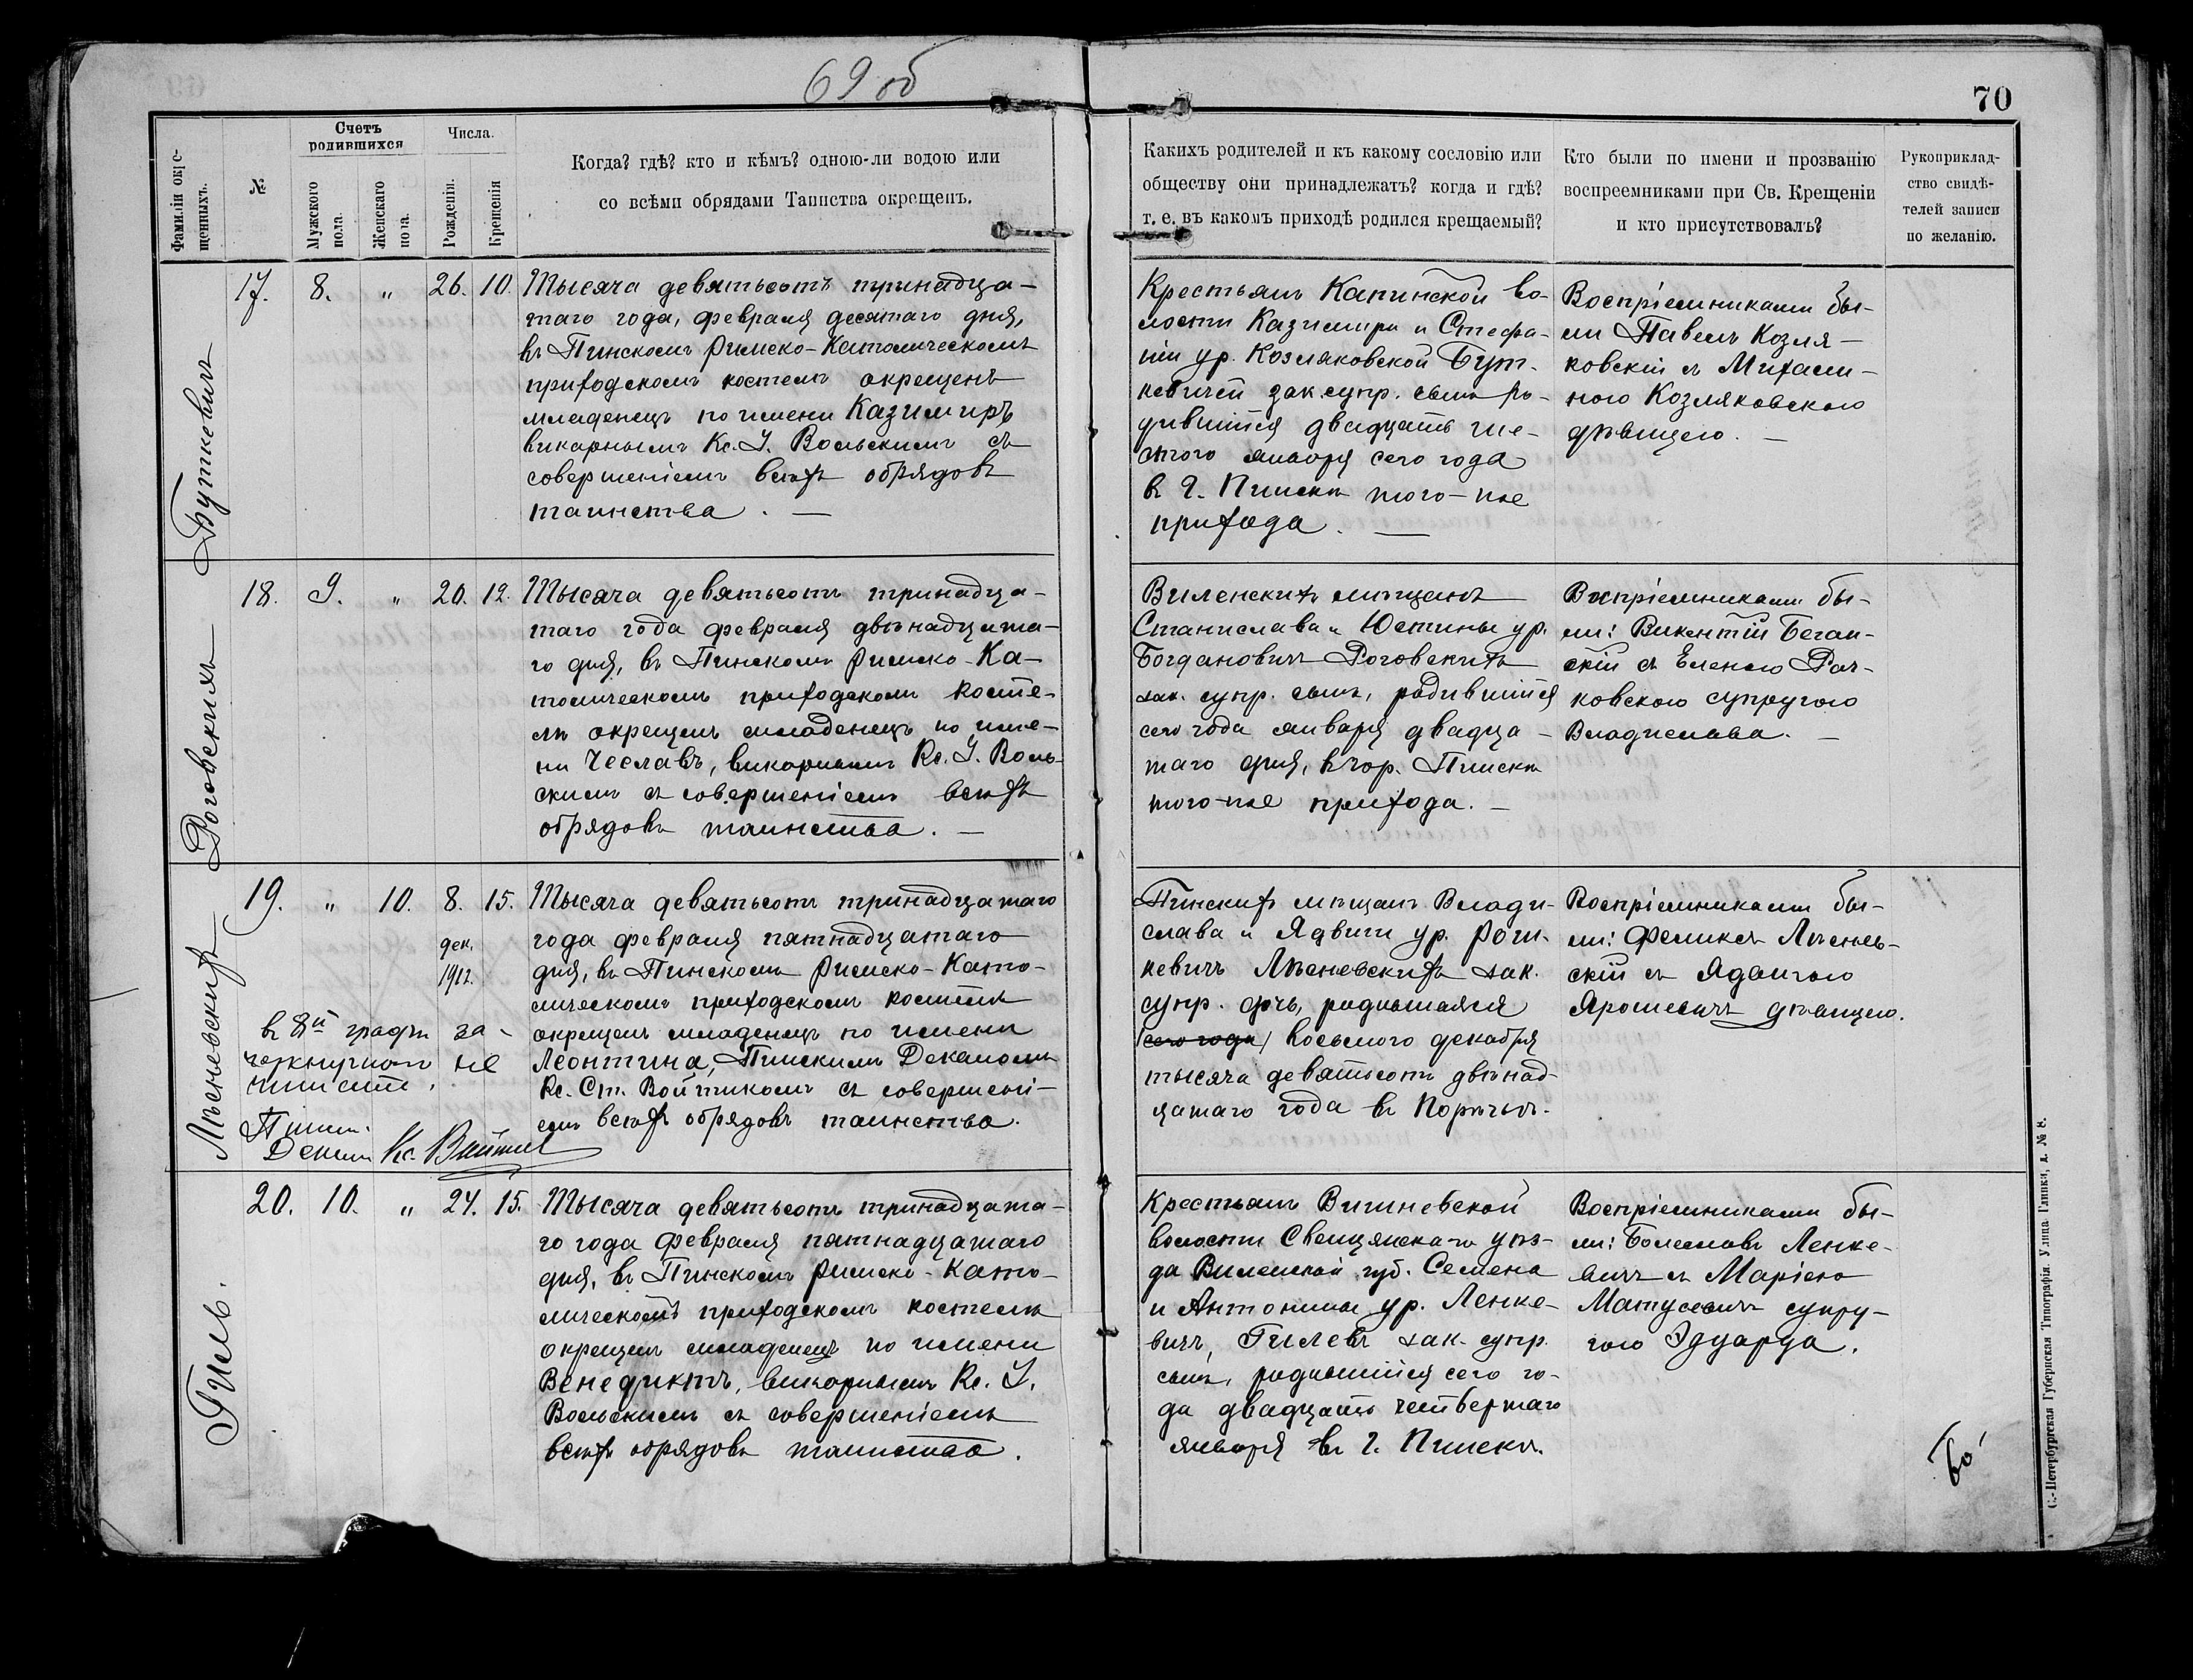 69 об
70
Фамиліи окре-
щенныхъ.
№
Счетъ
родившихся
Мужского
пола.
Женскаго
пола.
Числа.
Рожденія.
Крещенія
Когда? гдѣ? кто и кѣмъ? одною-ли водою или
со всѣми обрядами Таинства окрещенъ.
Какихъ родителей и къ какому сословію или
обществу они принадлежатъ? когда и гдѣ?
т. е. въ какомъ приходѣ родился крещаемый?
Кто были по имени и прозванію
воспреемниками при Св. Крещеніи
и кто присутствовалъ?
Рукоприклад-
ство свидѣ-
телей записи
по желанію.
Буткевичъ
17. 8. " 26. 10.
Тысяча девятьсотъ тринадца-
таго года, февраля десятаго дня,
въ Пинскомъ Римско-Католическомъ
приходскомъ костелѣ окрещенъ
младенецъ по имени Казимиръ
викарнымъ Кс. І. Вольскимъ съ
совершеніемъ всѣхъ обрядовъ
таинства. —
Крестьянъ Капинской во-
лости Казимира и Стефа-
ніи ур. Козляковской Бут-
кевичей зак. супр. сынъ ро-
дившійся двадцать ше-
стого января сего года
въ г. Пинскѣ того-же
прихода. —
Воспріемниками бы-
ли Павелъ Козля-
ковскій съ Михали-
ною Козляковскою
дѣвицею. —
Роговскихъ
18. 9. " 20. 12.
Тысяча девятьсотъ тринадца-
таго года февраля двѣнадцата-
го дня, въ Пинскомъ Римско-Ка-
толическомъ приходскомъ косте-
лѣ окрещенъ младенецъ по име-
ни Чеславъ, викарнымъ Кс. І. Воль-
скимъ съ совершеніемъ всѣхъ
обрядовъ таинства. —
Виленскихъ мѣщанъ
Станислава и Юстины ур.
Богдановичъ Роговскихъ
зак. супр. сынъ, родившійся
сего года января двадца-
таго дня, въ гор. Пинскѣ
того-же прихода. —
Воспріемниками бы-
ли: Викентій Беган-
скій съ Еленою Рач-
ковскою супругою
Владислава. —
Лѣсневскихъ
19. " 10. 8. 15.
дек.
1912.
Тысяча девятьсотъ тринадцатаго
года февраля пятнадцатаго
дня, въ Пинскомъ Римско-Като-
лическомъ приходскомъ костелѣ
окрещенъ младенецъ по имени
Леонтина, Пинскимъ Деканомъ
Кс. Ст. Войтикомъ съ совершені-
емъ всѣхъ обрядовъ таинства.
въ 8й графѣ за-
черкнутаго не
читать,
Пинск.
Деканъ Кс. Войтикъ
Пинскихъ мѣщанъ Влади-
слава и Ядвиги ур. Роги-
кевичъ Лѣсневскихъ зак.
супр. дчь, родившаяся
/сего года/ восьмого декабря
тысяча девятьсотъ двѣнад-
цатаго года въ Порѣчьѣ.
Воспріемниками бы-
ли: Феликсъ Лѣснев-
скій съ Ядвигою
Ярошевичъ дѣвицею.
Гиль.
20. 10. " 24. 15.
Тысяча девятьсотъ тринадцата-
го года февраля пятнадцатаго
дня, въ Пинскомъ Римско-Като-
лическомъ приходскомъ костелѣ
окрещенъ младенецъ по имени
Венедиктъ, викарнымъ Кс. І.
Вольскимъ съ совершеніемъ
всѣхъ обрядовъ таинства.
Крестьянъ Вишневской
волости Свенцянскаго уѣз-
да Виленской губ. Семена
и Антонины ур. Ленке-
вичъ, Гилевъ зак. супр.
сынъ, родившійся сего го-
да двадцать четвертаго
января въ г. Пинскѣ.
Воспріемниками бы-
ли: Болеславъ Ленке-
вичъ съ Маріею
Матусевичъ супру-
гою Эдуарда.
С.-Петербургская Губернская Типографія. Улица Глинки, д. № 8.